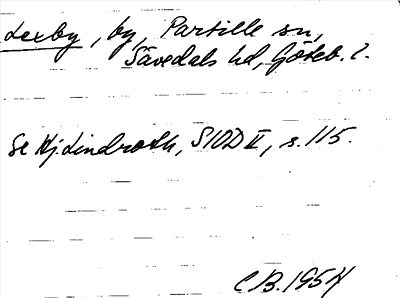 Lexby, by, Partille sn,
Sävedals hd, Göteb. l.
Se Hj Lindroth, SIOD II, s. 115.
C.B. 1954